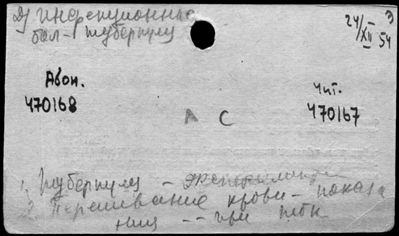 2) инфекционные
бол- туберкул
24/XII 54
Абон.
470168
Чит.
470167
А С
1. Туберкулез - эксперимент
2. Переливание крови - показа
ния -- при тбк